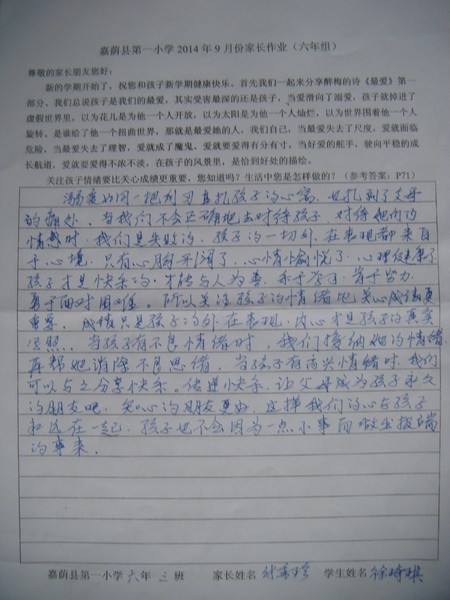 嘉荫县第一小学 2014 年 9 月份家长作业（六年组）
尊敬的家长朋友您好：
新的学期开始了，祝您和孩子新学期健康快乐。首先我们一起来分享醉梅的诗《最爱》第一
部分。我们总说孩子是我们的最爱，其实受害最深的还是孩子，当爱滑向了溺爱，孩子就掉进了
虚假世界里，以为花儿是为他一个人开放，以为太阳是为他一个人灿烂，以为世界围着他一个人
旋转。是谁给了他一个扭曲世界，那就是最爱她的人，我们自己，当最爱失去了尺度，爱就面临
危险，当最爱失去了理智，爱就成了魔鬼。爱就要爱得有分有寸，当好爱的舵手，驶向平稳的成
长航道，爱就要爱得不浓不淡，在孩子的风景里，是恰到好处的描绘。
关注孩子情绪要比关心成绩更重要，您知道吗？生活中您是怎样做的？（参考答案：P71）
的一把利刃直扎孩子的心窝，也扎到了父母
的痛处。当我们不会正确地去对待孩子，对待她内心的
情感时，我们是失败的，孩子的一切外在表现都来自
于心境，只有心胸开阔了，心情愉悦了，心理健康了
孩子才是快乐的，才能与人为善，乐于学习，肯于努力
勇于面对困难。所以关注孩子的情绪比关心成绩更
重要。成绩只是孩子的外在表现，内心才是孩子的真实
写照。当孩子有不良情绪时，我们接纳她的情绪
再帮她消除不良思绪，当孩子有高兴情绪时，我们
可以与之分享快乐。传递快乐，让父母成为孩子永久
的朋友吧，知心的朋友更好，这样我们的心与孩子
永远在一起，孩子也不会因为一点小事而做出极端
的事来。
嘉荫县第一小学 六年 三 班 家长姓名 学生姓名 徐